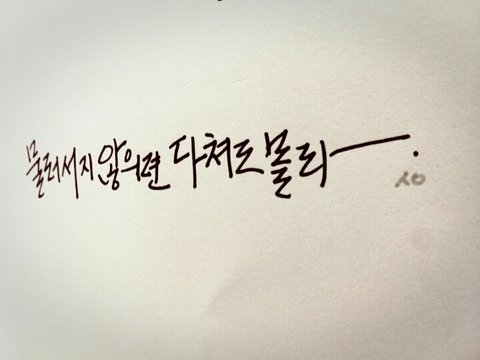 물러서지 않으면 다쳐도 몰라.
ㅅㅇ